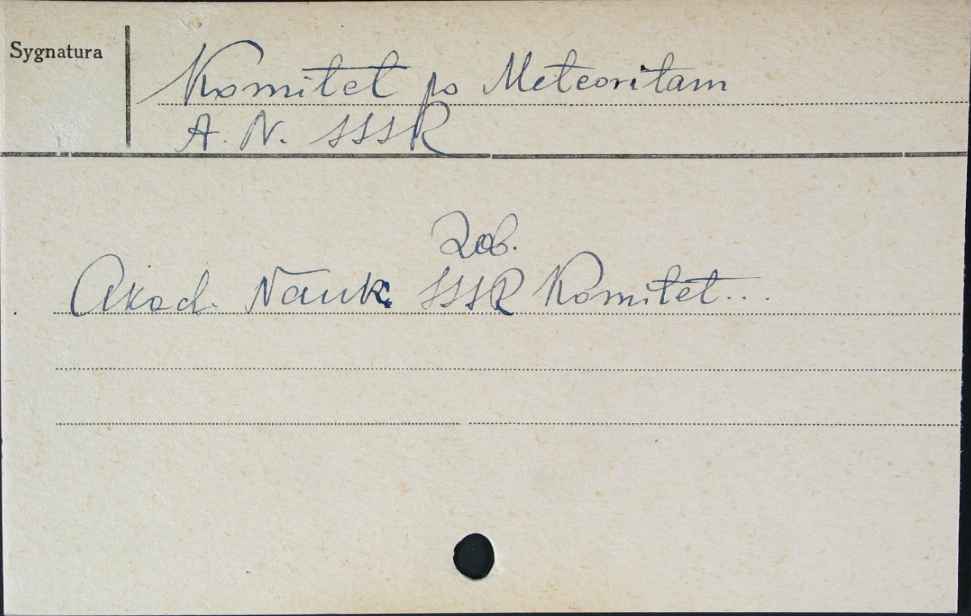 Sygnatura
Komitet po Meteoritam
A. N. SSSR
Zob.
Akad. Nauk SSSR Komitet...